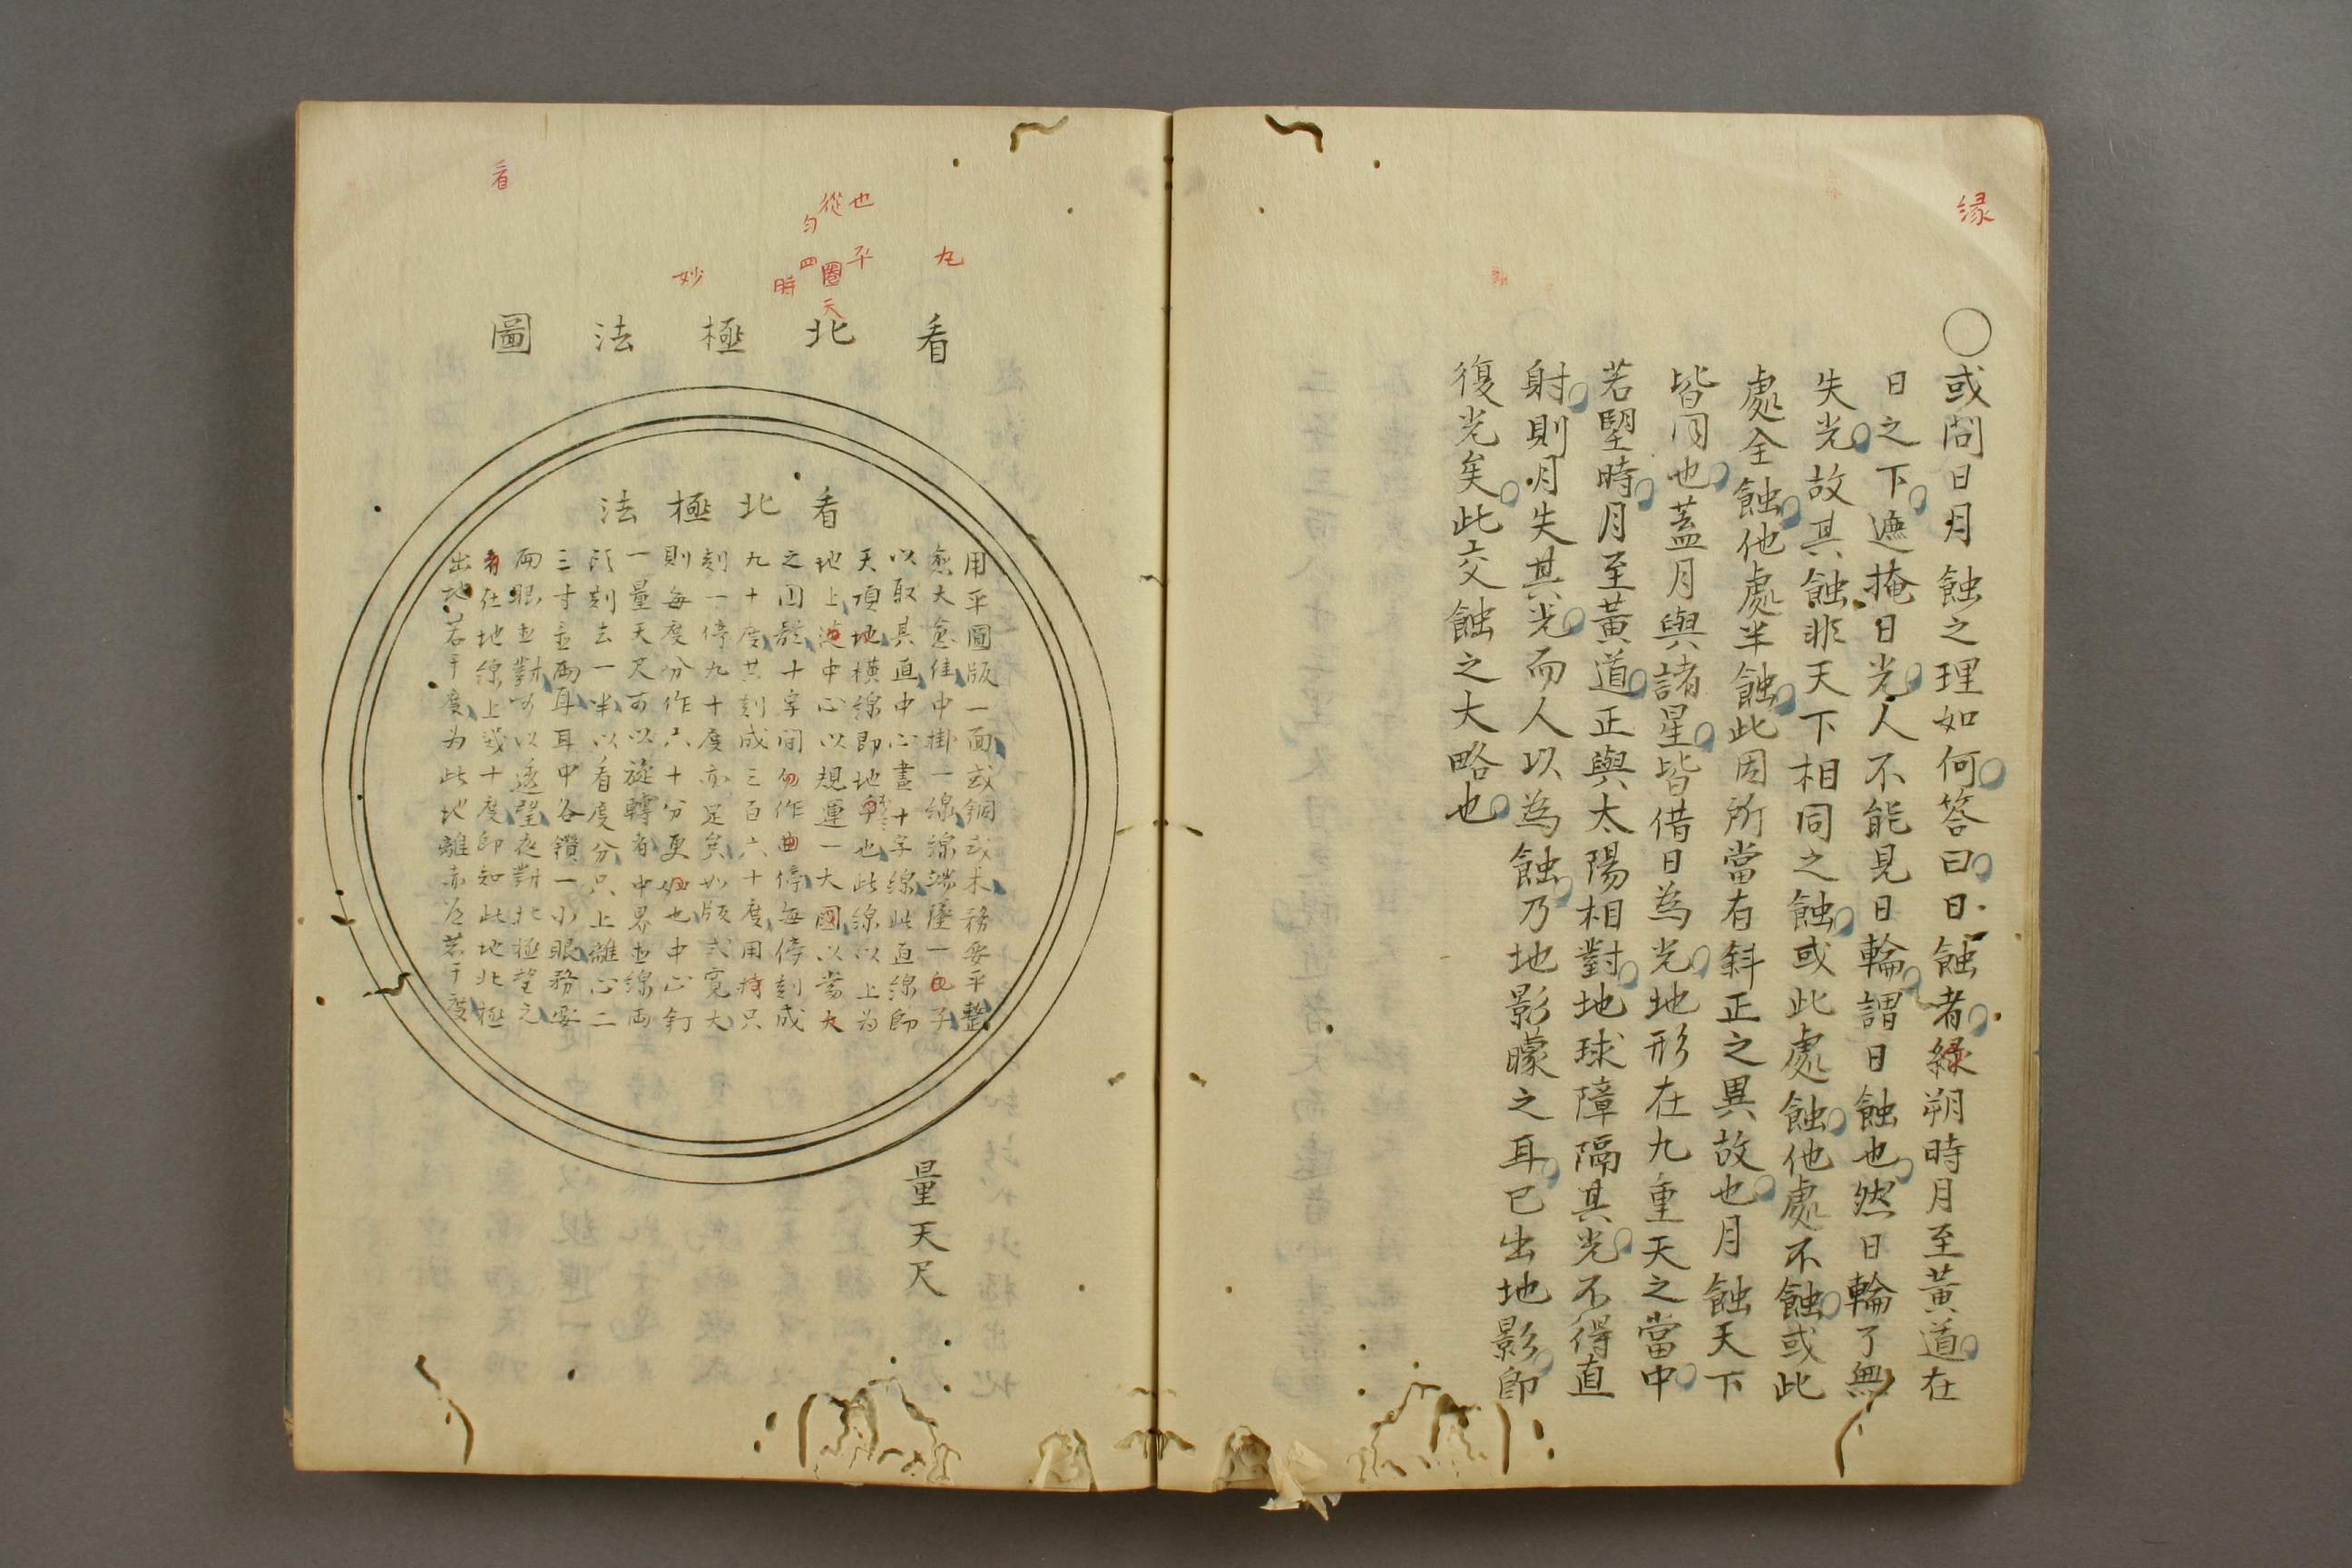 緣
○或問日月蝕之理如何答曰日蝕者綠朔時月至黃道在
日之下遮掩日光人不能見日輪謂日蝕也然日輪了無
失光故其蝕非天下相同之蝕或此處蝕他處不蝕或此
處全蝕他處半蝕此因所當有斜正之異故也月蝕天下
皆同也蓋月與諸星皆借日為光地形在九重天之當中
若朢時月至黃道正與太陽相對地球障隔其光不得直
射則月失其光而人以為蝕乃地影矇之耳已出地影即
復光矣此交蝕之大略也
丸
也
平
從
圈
天
勻
四
時
妙
看
看北極法圖
看北極法
用平圓版一面或銅或木務要平整
愈大愈佳中掛一線線端墜一白子
以取其直中心畫十字線此直線即
天頂地橫線即地平也此線以上為
地上中心以規運一大國以當大
之國於十字間勿作曲停每停刻成
九十度共刻成三百六十度用時只
刻一停九十度亦足矣如版式寬大
則每度分作六十分更也中心釘
一量天尺可以旋轉者中界直線兩
頭刻去一半以看度分尺上離心二
三寸並兩耳耳中各鑽一小眼務要
兩眼並對可以透望夜對北極望之
有在地線上幾十度即知此地北極
出地若干度為此地離赤道若干度
量天尺